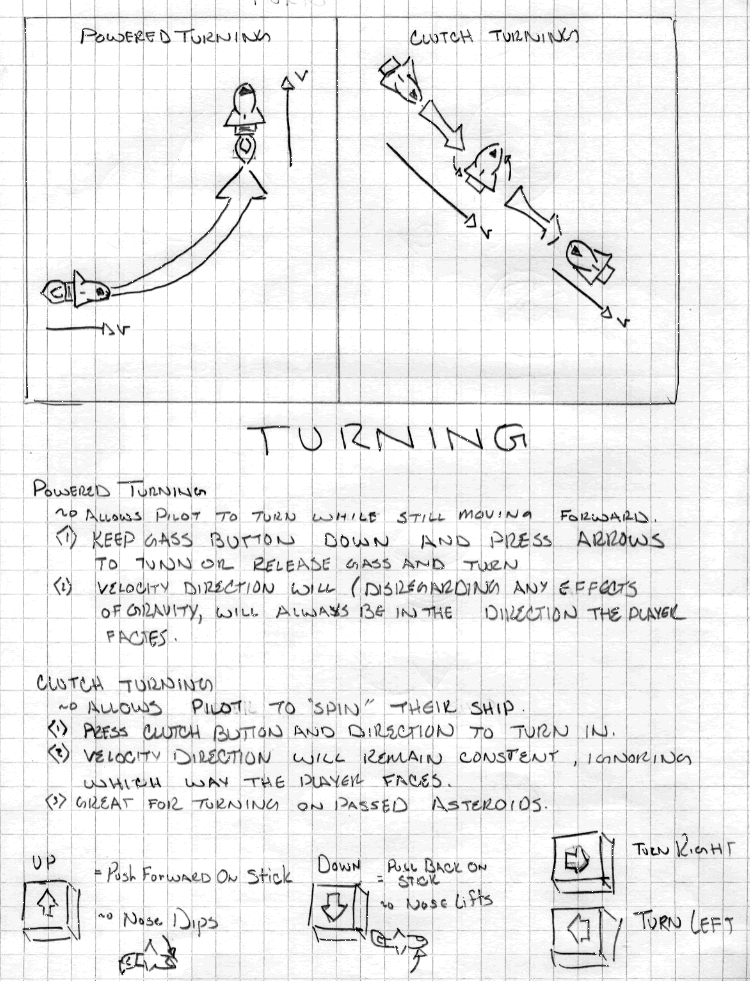 POWERED TURNING
CLUTCH TURNING
V
V
V
V
TURNING
POWERED TURNING
~o ALLOWS PILOT TO TURN WHILE STILL MOVING FORWARD.
(1) KEEP GASS BUTTON DOWN AND PRESS ARROWS
TO TUNN OR RELEASE GASS AND TURN
(2) VELOCITY DIRECTION WILL (DISREGARDING ANY EFFECTS
OF GRAVITY, WILL ALWAYS BE IN THE DIRECTION THE PLAYER
FACES.
CLUTCH TURNING
~o ALLOWS PILOT TO "SPIN" THEIR SHIP.
(1) PRESS CLUTCH BUTTON AND DIRECTION TO TURN IN.
(2) VELOCITY DIRECTION WILL REMAIN CONSTENT, IGNORING
WHICH WAY THE PLAYER FACES.
(3) GREAT FOR TURNING ON PASSED ASTEROIDS.
UP
= PUSH FORWARD ON STICK
~o NOSE DIPS
DOWN
= PULL BACK ON
STICK
~o NOSE LIFTS
TURN RIGHT
TURN LEFT